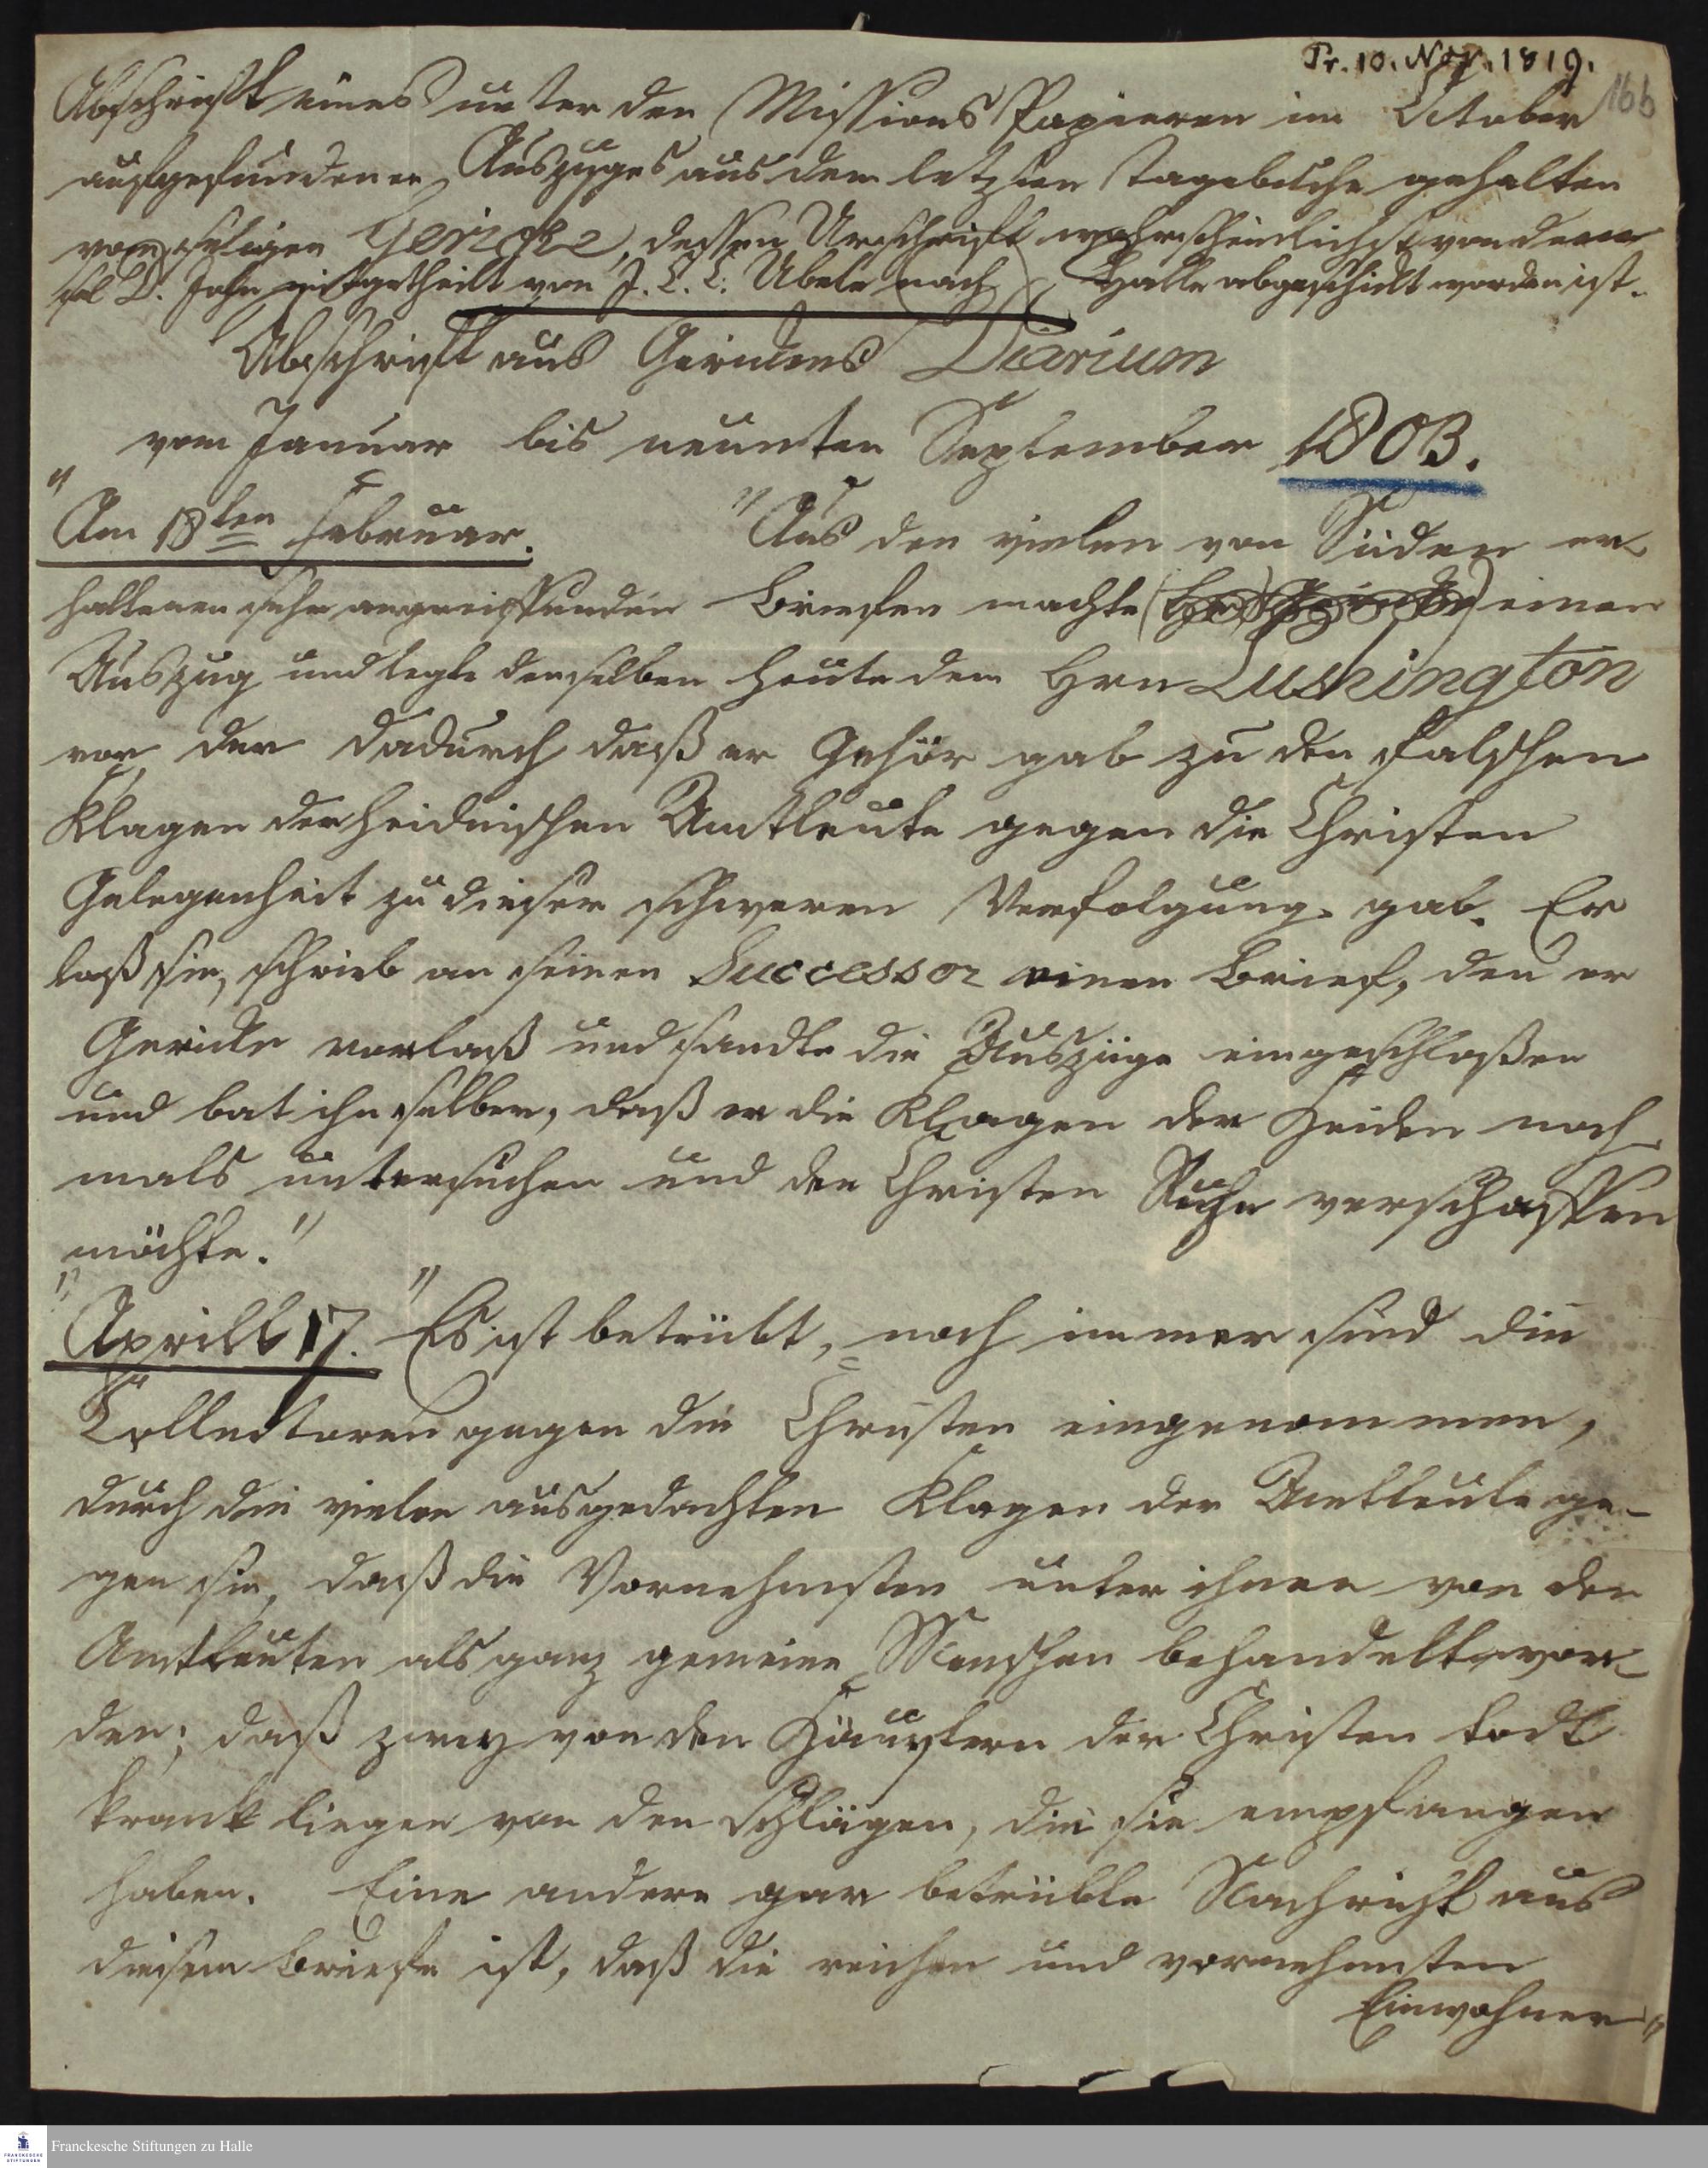 Pr. 10. Nov. 1819.
166
Abschrift eines unter den Missions Papieren im October
aufgefundenen Auszuges aus dem letzten Tagebuche gehalten
vom seligen Gericke, dessen Urschrift wahrscheinlichst von dem
sel D. John mitgetheilt von J. C. C. Ubele nach Halle abgeschickt worden ist.
Abschrift aus Gerickens Diarium
vom Januar bis neunten September 1803.
"Am 18ten Februar. "Aus den vielen von Süden er-
haltenen sehr angreiffenden Briefen machte einen
Auszug und legte denselben heute dem Hrn Lushington
vor der dadurch daß er Gehör gab zu den falschen
Klagen der heidnischen Amtleute gegen die Christen
Gelegenheit zu dieser schweren Verfolgung gab. Er
laß sie, schrieb an seinen Successor einen Brief, den er
Gericke vorlaß und sandte die Auszüge eingeschloßen
und bat ihn selber, daß er die Klagen der Heiden noch-
mals untersuchen und den Christen Ruhe verschaffen
möchte."
"Aprill 17. "Es ist betrübt, noch immer sind die
Collectoren gegen die Christen eingenommen,
durch die vielen ausgedachten Klagen der Amtleute ge-
gen sie, daß die Vornehmsten unter ihnen von den
Amtleuten als ganz gemeine Menschen behandelt wor-
den; daß zwey von den Häuptern der Christen todt
krank liegen von den Schlägen, die sie empfangen
haben. Eine andere gar betrübte Nachricht aus
diesem Briefe ist, daß die reichen und vornehmsten
Einwohner"
Franckesche Stiftungen zu Halle